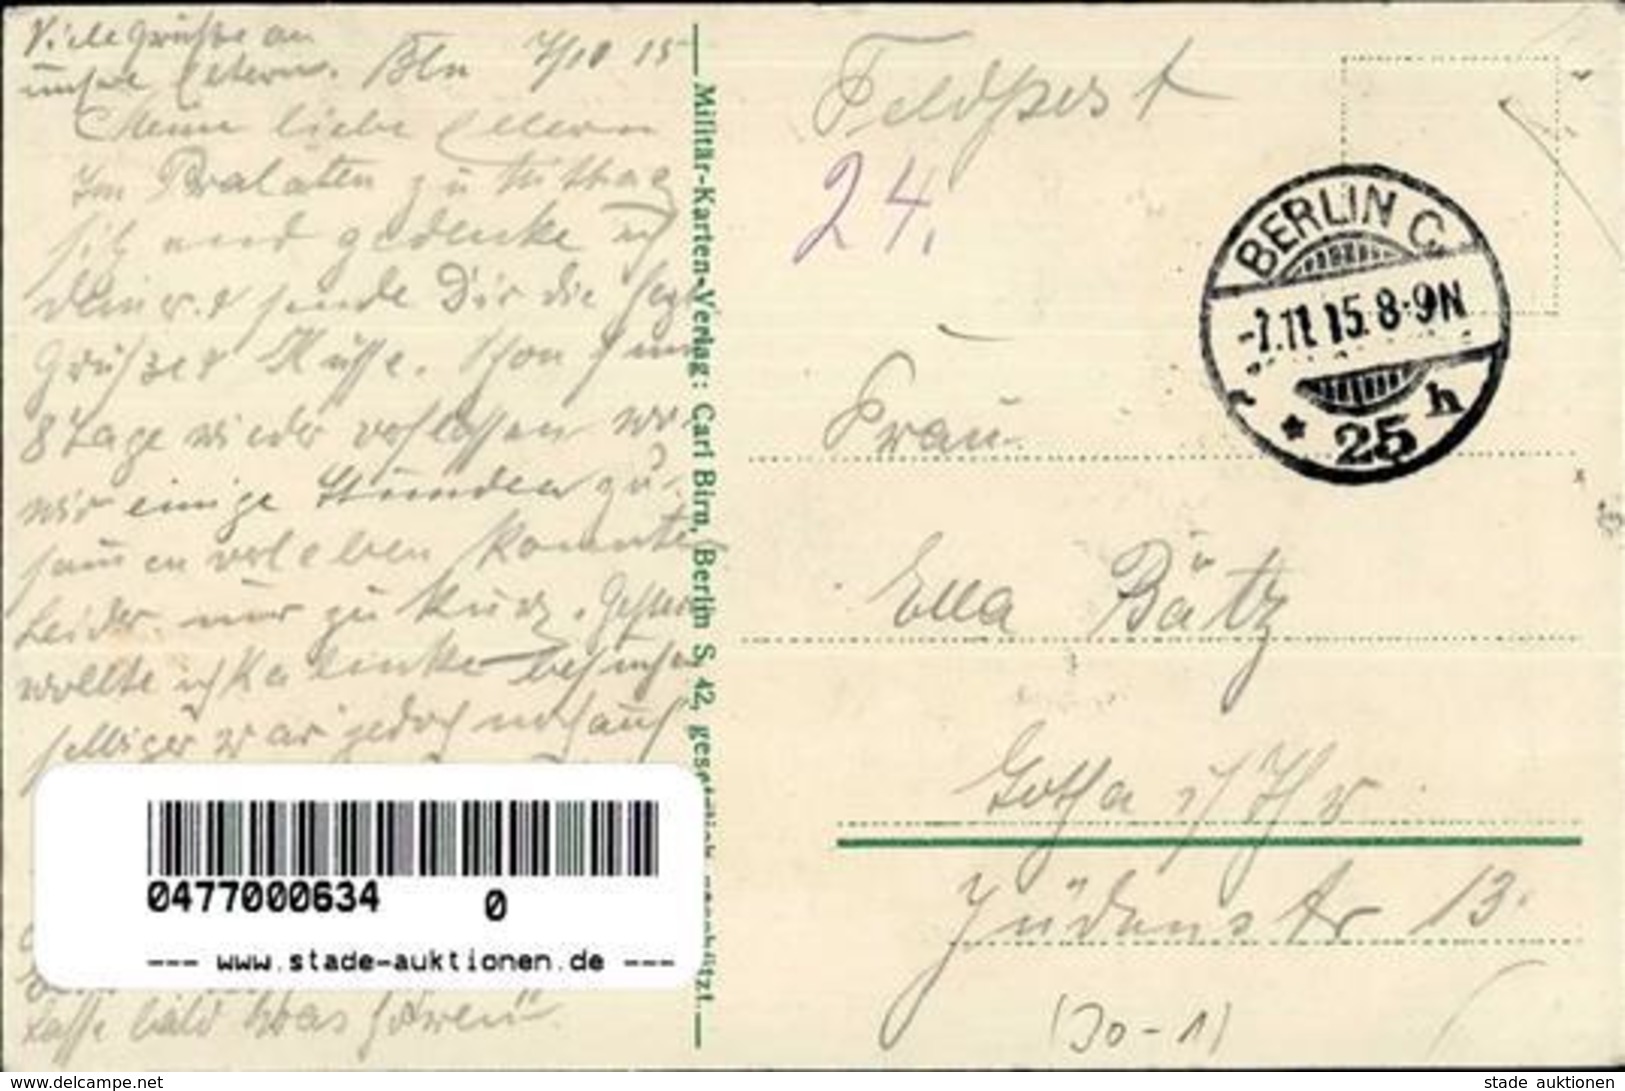 Viele Grüsse an
unsre Eltern. Bln 7/11 15
Meine liebe
Im Prälaten zu Mittag
sitz und gedenke ich
Deiner & sende Dir die
Grüsse & Küsse. Schon sind
8 Tage wieder verflossen wo
wir einige Stunden zu-
sammen verleben konnten
Leider nur zu kurz. Gestern
wollte ich besuchen
selbiger war jedoch noch auf
Lasse bald etwas hören
Militär-Karten-Verlag: Carl Birn, Berlin S. 42, gesetzlich geschützt.
Feldpost
24.
BERLIN C.
-7.11.15. 8-9N
* 25 h
Frau
Ella Bätz
Gotha i/Thr
Jüdenstr 13.
(30-1)
0477000634 0
--- www.stade-auktionen.de ---
www.delcampe.net
stade auktionen